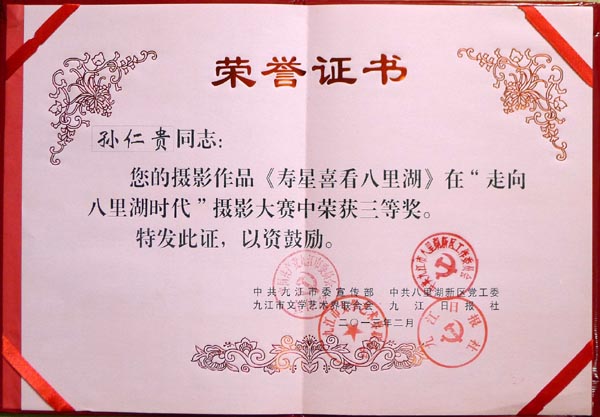 荣誉证书
孙仁贵同志：
您的摄影作品《寿星喜看八里湖》在“走向
八里湖时代”摄影大赛中荣获三等奖。
特发此证，以资鼓励。
中共九江市委宣传部 中共八里湖新区党工委
九江市文学艺术界联合会 九江日报社
二〇一二年二月
九江日报社